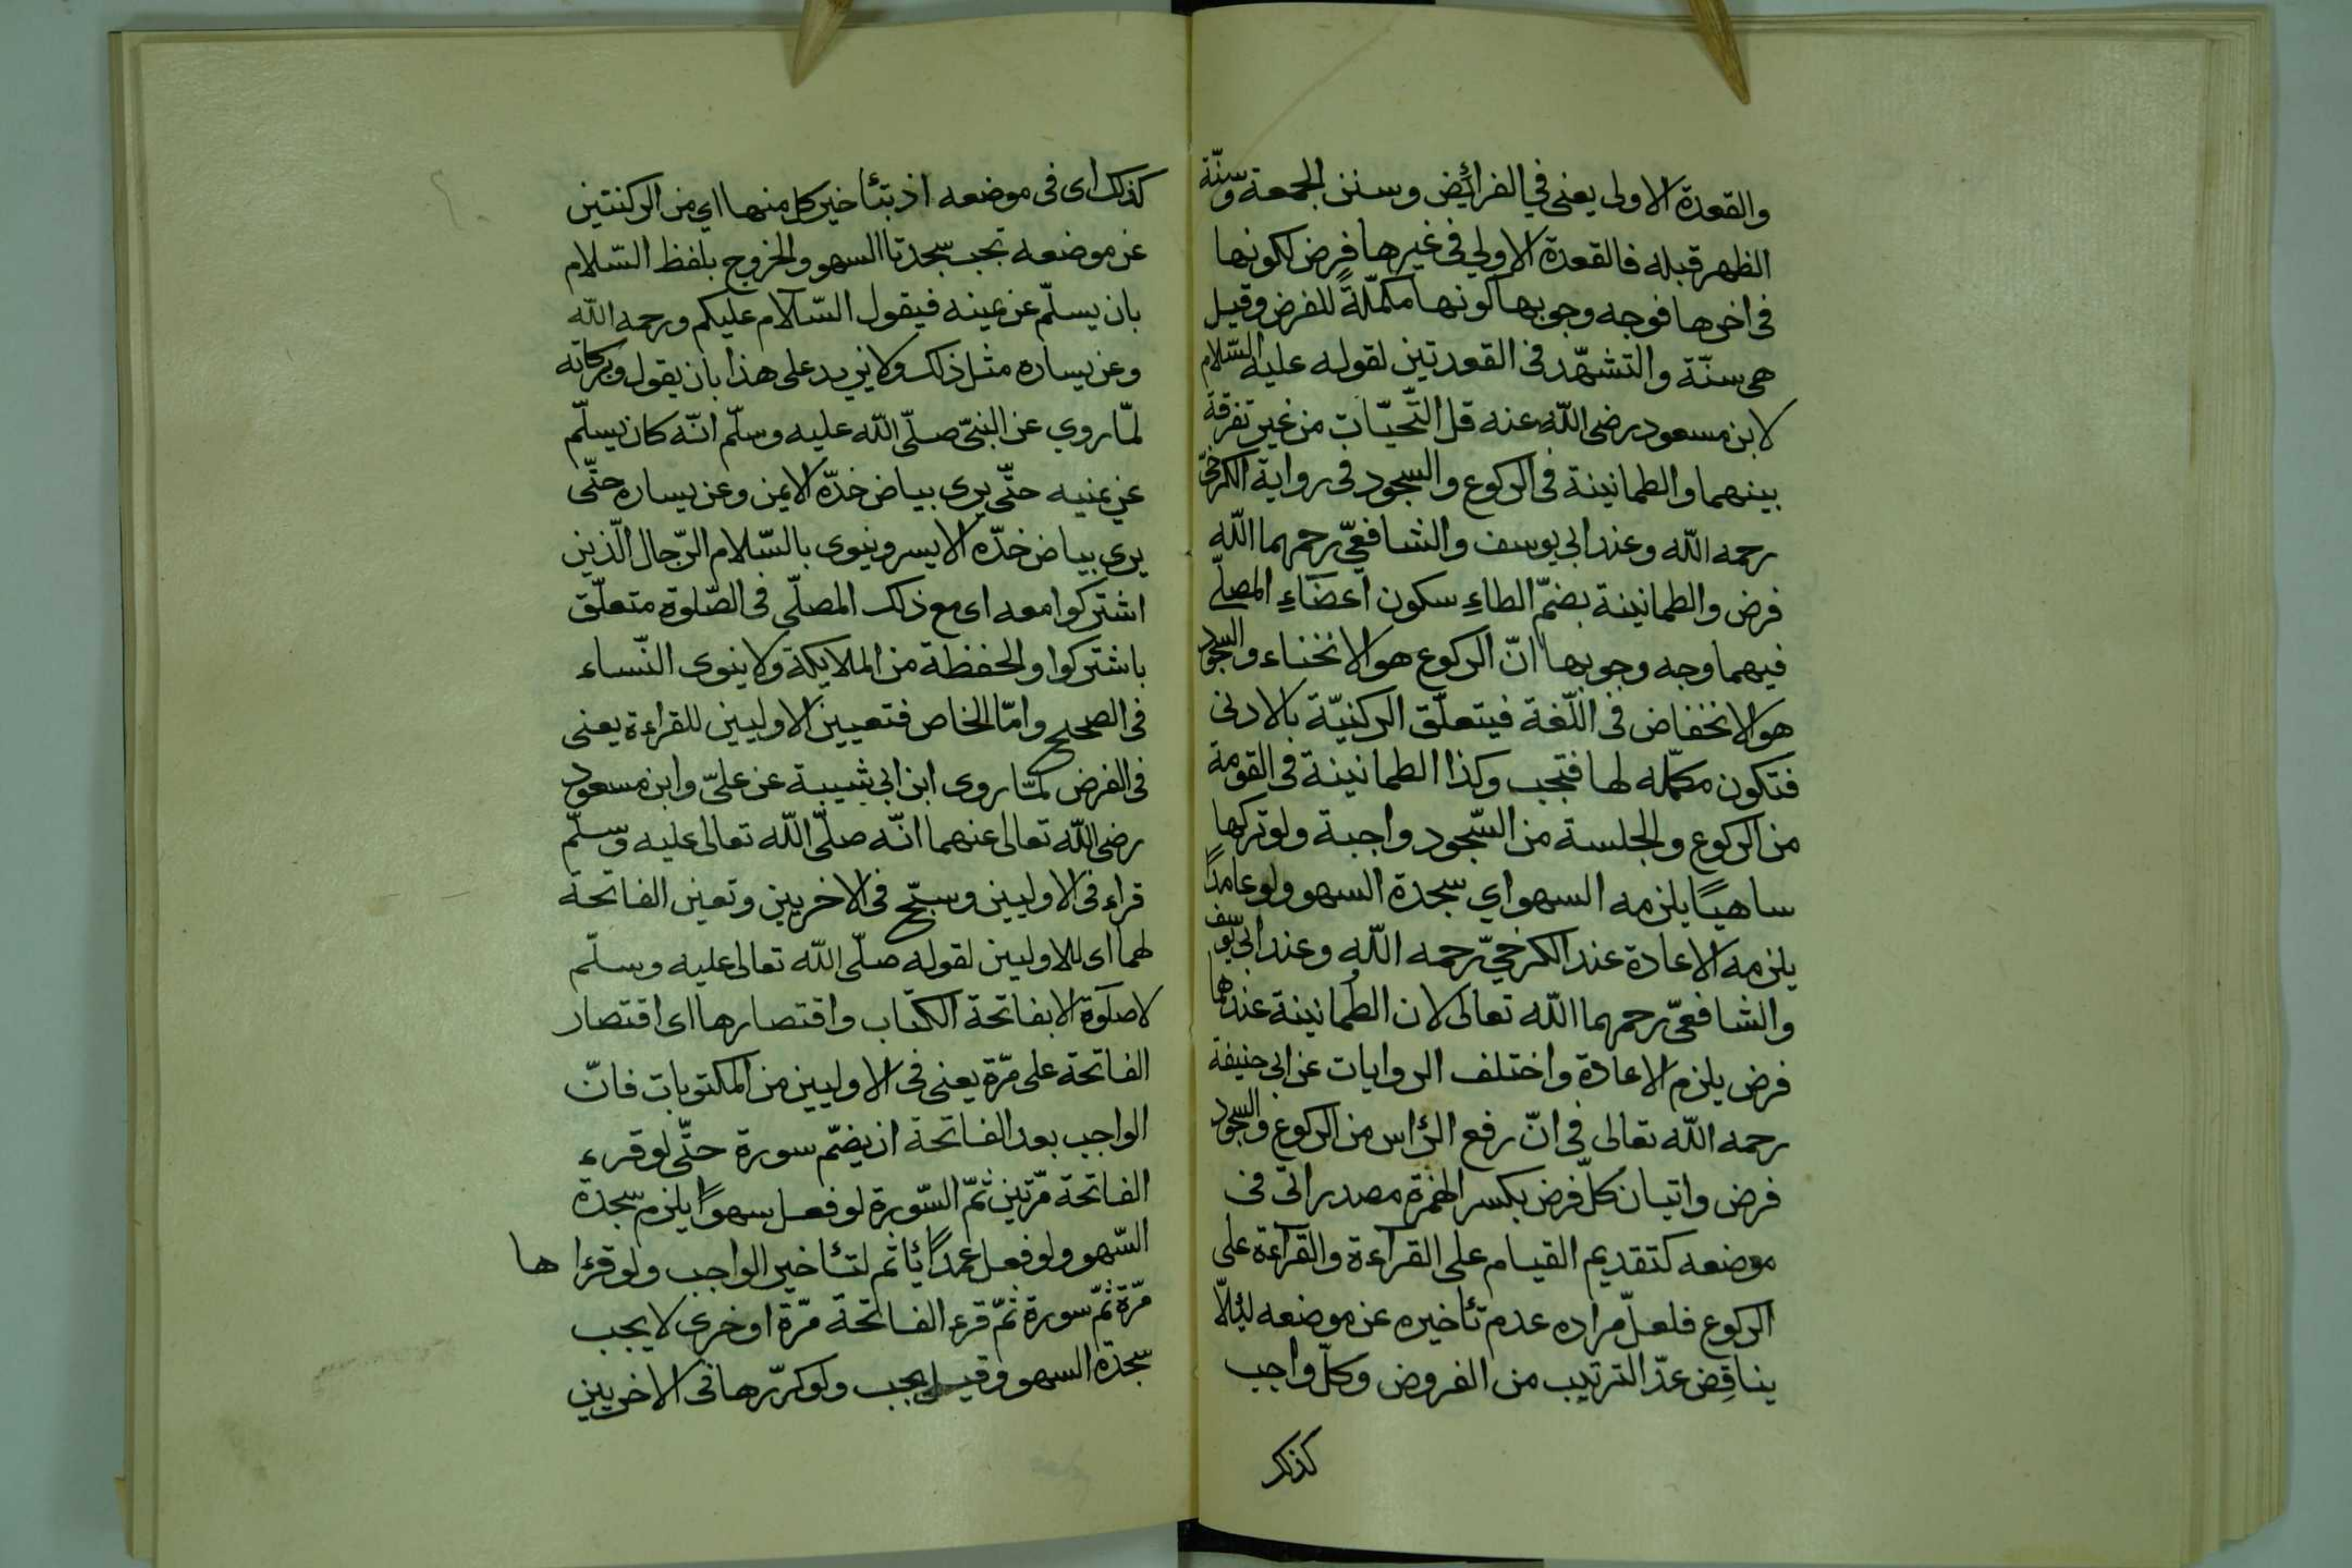 والقعدة الاولى يعنى في الفرائض وسنن الجمعة وسنّة
الظهر قبله فالقعدة الاولي فى غيرها فرض لكونها
فى اخرها فوجه وجوبها كونها مكمّلةً للفرض وقيل
هى سنّة والتشهّد فى القعدتين لقوله عليه السّلام
لابن مسعود رضى اللّه عنه قل التّحيّات من غير تفرقة
بينهما والطمانينة فى الركوع والسجود فى رواية الكرخىّ
رحمه اللّه وعند ابى يوسف والشافعىّ رحمهما اللّه
فرض والطمانينة بضمّ الطاءِ سكون اعضاءِ المصلّى
فيهما وجه وجوبها انّ الركوع هو الانحناء والسجود
هو الانخفاض فى اللّغة فيتعلّق الركنيّة بالادنى
فتكون مكمّله لها فتجب وكذا الطمانينة فى القومة
من الركوع والجلسة من السّجود واجبة ولو تركها
ساهيًا يلزمه السهو اي سجدة السهو ولو عامدًا
يلزمه الاعادة عند الكرخىّ رحمه اللّه وعند ابى يوسف
والشافعىّ رحمهما اللّه تعالى لان الطمانينة عندهما
فرض يلزم الاعادة واختلف الروايات عن ابى حنيفة
رحمه اللّه تعالى فى انّ رفع الرٔاس من الركوع والسجود
فرض واتيان كلّ فرض بكسر الهمزة مصدر اتى فى
موضعه كتقديم القيام على القراءة والقراءة على
الركوع فلعلّ مراده عدم تأخيره عن موضعه لئلاّ
يناقِض عدّ الترتيب من الفروض وكلّ واجب
كذلك
كذلك اى فى موضعه اذ بتٔاخير كل منها اي من الركنتين
عن موضعه تجب سجدتا السهو والخروج بلفظ السّلام
بان يسلّم عن يمينه فيقول السّلام عليكم ورحمه اللّه
وعن يساره مثل ذلك ولا يزيد على هذا بان يقول وبركاته
لمّا روي عن النبىّ صلّى اللّه عليه وسلّم انّه كان يسلّم
عن يمنيه حتّى يرى بياض خدّه الايمن وعن يساره حتّى
يرى بياض خدّه الايسر وينوى بالسّلام الرّجال الّذين
اشتركوا معه اى مع ذلك المصلّى فى الصّلوة متعلّق
باشتركوا والحفظة من الملايكة ولا ينوى النّساء
فى الصحيح وامّا الخاص فتعيين الاوليين للقراءة يعنى
فى الفرض لمّا روى ابن ابى شيبة عن علىّ وابن مسعود
رضى اللّه تعالى عنهما انّه صلّى اللّه تعالى عليه وسلّم
قراء فى الاوليين وسبّح فى الاخريين وتعين الفاتحة
لهما اى للاوليين لقوله صلّى اللّه تعالى عليه وسلّم
لا صلوة الا بفاتحة الكتاب واقتصارها اى اقتصار
الفاتحة على مرّة يعنى فى الاوليين من المكتوبات فانّ
الواجب بعد الفاتحة ان يضمّ سورة حتّى لو قرء
الفاتحة مرّتين ثمّ السّورة لو فعل سهوًا يلزم سجدة
السّهو ولو فعل عمدًا ئاثم لتٔاخير الواجب ولو قرءا ها
مرّة ثمّ سورة ثمّ قرء الفاتحة مرّة اوخرى لا يجب
سجدة السهو وقيل يجب ولو كرّرها فى الاخريين